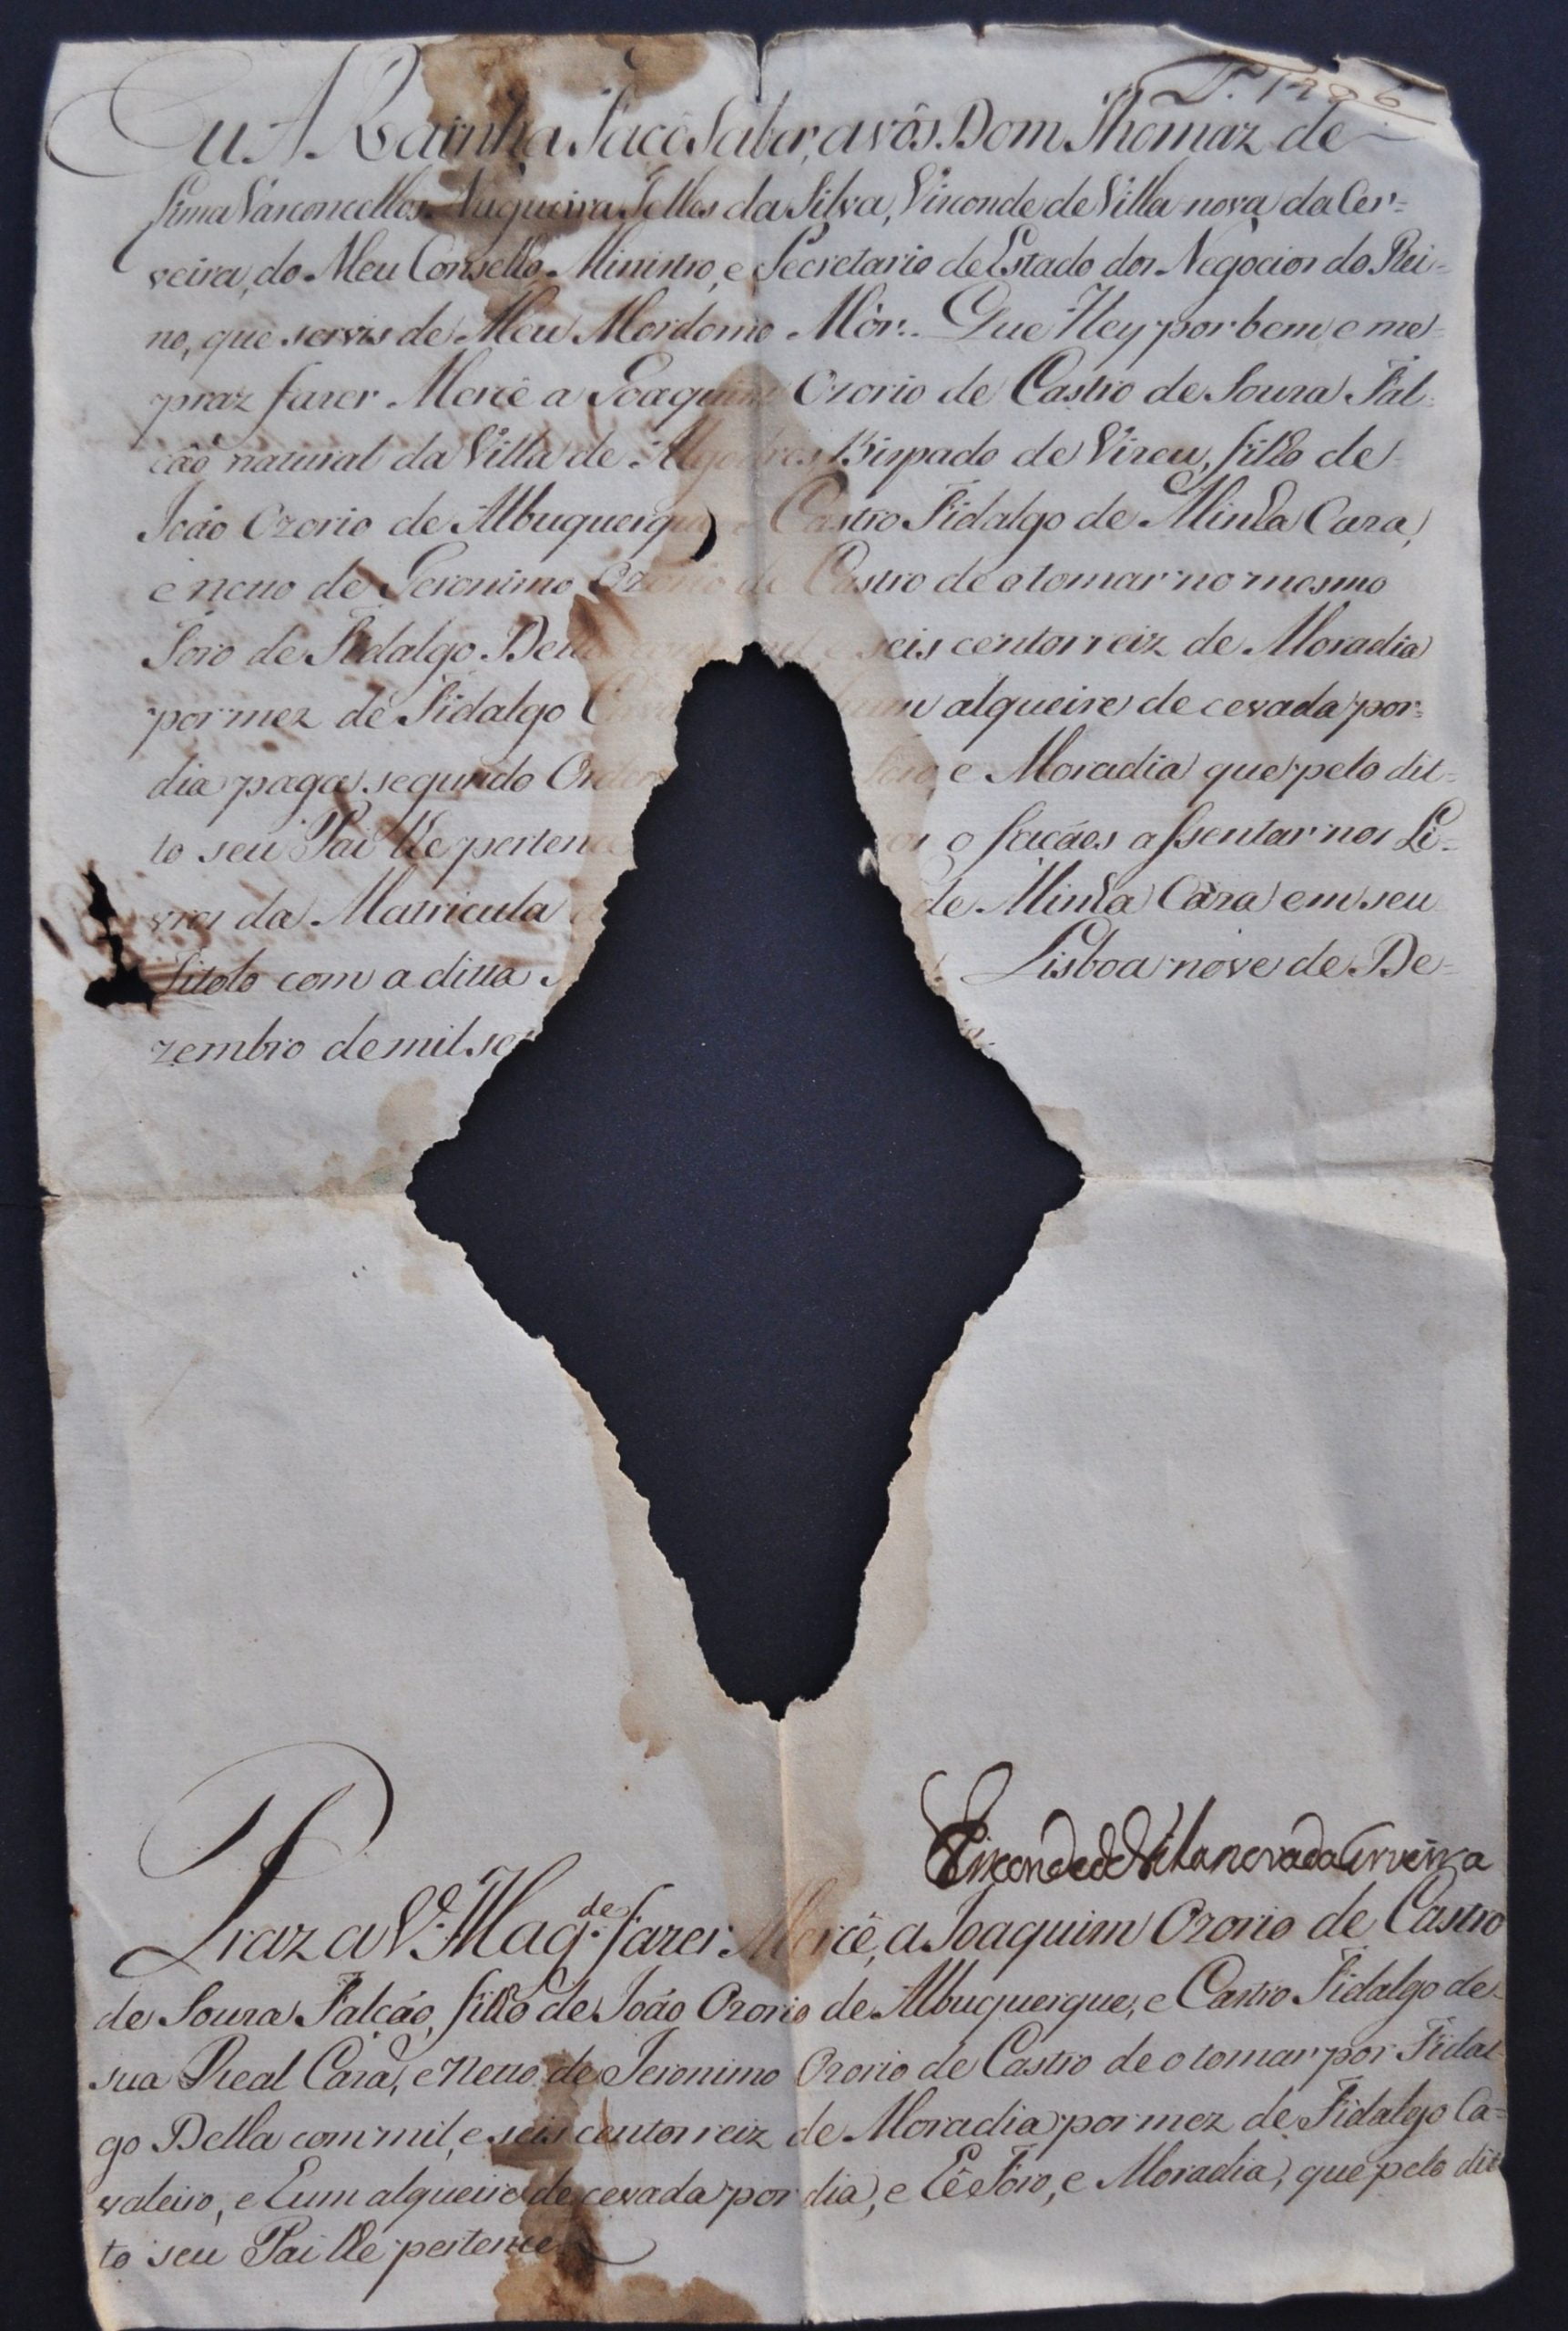 Eu A Rainha Faço Saber, a vós Dom Thomaz de
Lima Vasconcellos Nugueira Telles da Silva, Visconde de Villa nova da Cer=
veira, do Meu Conselho, Ministro, e Secretario de Estado dos Negocios do Rei=
no, que servis de Meu Mordomo Mór. Que Hey por bem e me
praz fazer Mercê a Joaquim Ozorio de Castro de Souza Fal=
cão natural da Villa de Algodres Bispado de Vizeu, filho de
João Ozorio de Albuquerque e Castro Fidalgo de Minha Caza,
e neto de Jeronimo Ozorio de Castro de o tomar no mesmo
Foro de Fidalgo Della seis centos reiz de Moradia
por mez de Fidalgo alqueire de cevada por=
dia paga segundo Orden Foro, e Moradia que pelo dit=
to seu Pai lhe pertence o façáes assentar nos Li=
vros da Matricula de Minha Caza em seu
Titolo com a ditta Lisboa nove de De=
zembro de mil set
Visconde de Vila nova da Cerveira
Praz a V. Mag.de fazer Mercê, a Joaquim Ozorio de Castro
de Souza Falcáo, filho de João Ozorio de Albuquerque, e Castro Fidalgo de
sua Real Caza, e Neto de Jeronimo Ozorio de Castro de o tomar por Fidal
go Della com mil, e seis centos reiz de Moradia por mez de Fidalgo Ca=
valeiro, e hum alqueire de cevada por dia, e hê Foro, e Moradia, que pelo dit
to seu Pai lhe pertence